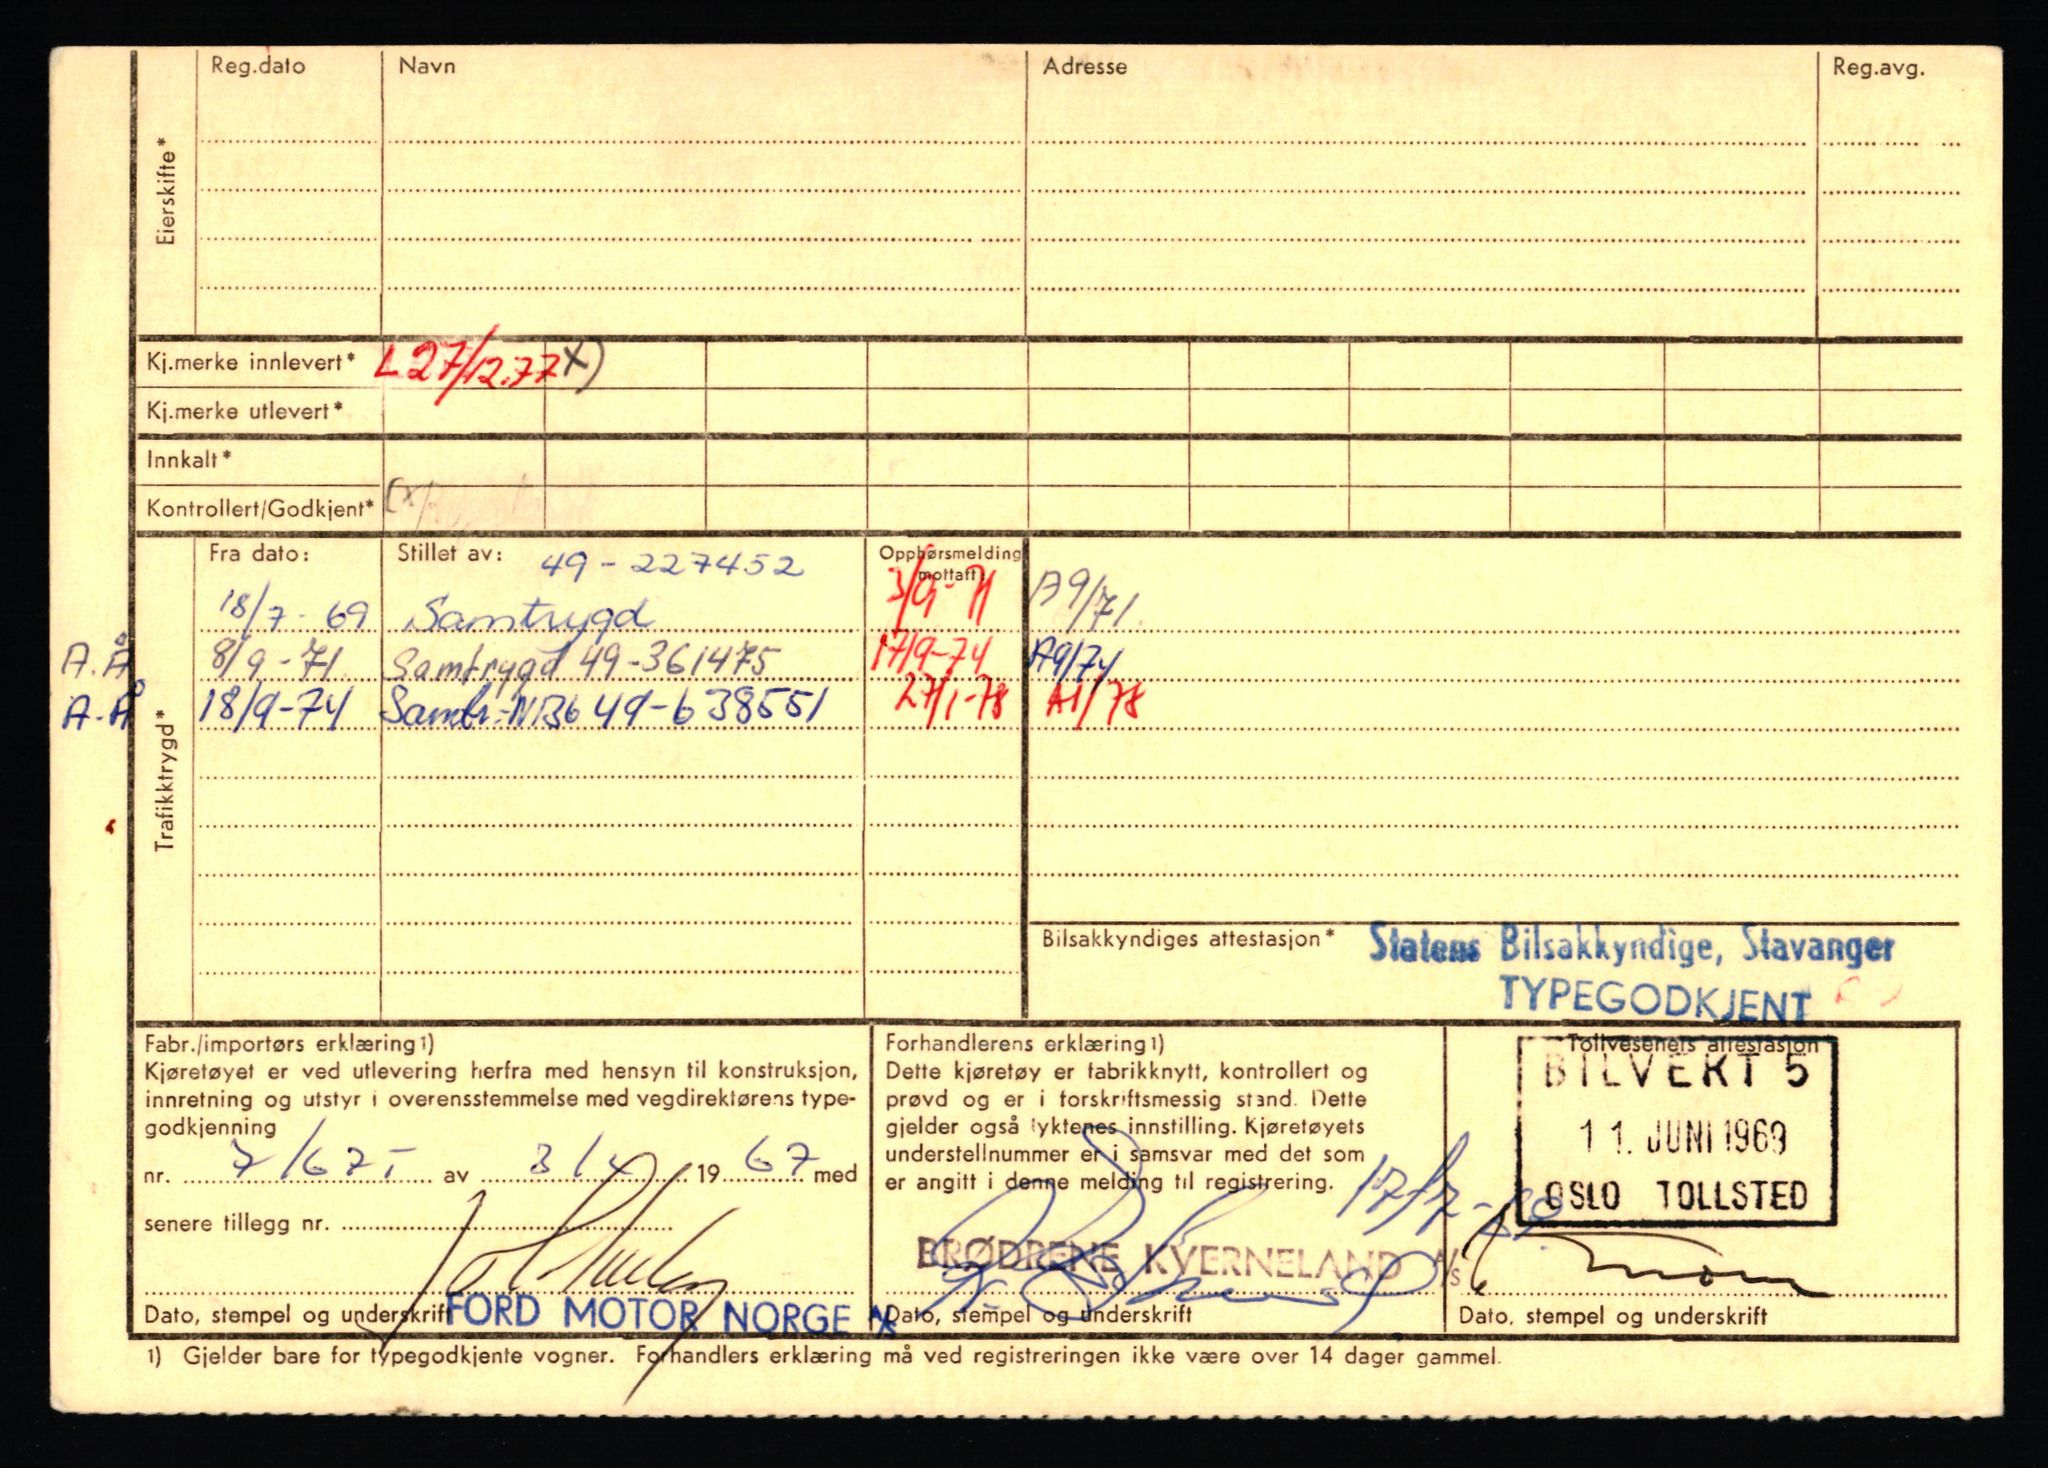 Reg.dato Navn Adresse Reg.avg.
Eierskifte*
Kj.merke innlevert* L 27/12.77 x)
Kj.merke utlevert*
Innkalt*
Kontrollert/Godkjent* (x)
Trafikktrygd*
Fra dato: Stillet av: 49-227452 Opphørsmelding mottatt:
18/7-69 Samtrygd 3/9-71 A9/71.
A.Å 8/9-71. Samtrygd 49-361475 17/9-74 A9/74
A-Å 18/9-74 Samtr.-NB6 49-638551 27/1-78 A1/78
Bilsakkyndiges attestasjon* Statens Bilsakkyndige, Stavanger
TYPEGODKJENT
Fabr./importørs erklæring1)
Kjøretøyet er ved utlevering herfra med hensyn til konstruksjon,
innretning og utstyr i overensstemmelse med vegdirektørens type-
godkjenning
nr. 7/67I av 3/4 1967 med
senere tillegg nr.
Dato, stempel og underskrift FORD MOTOR NORGE A/S
Forhandlerens erklæring1)
Dette kjøretøy er fabrikknytt, kontrollert og
prøvd og er i forskriftsmessig stand. Dette
gjelder også lyktenes innstilling. Kjøretøyets
understellnummer er i samsvar med det som
er angitt i denne melding til registrering. 17/7-69
BRØDRENE KVERNELAND A/S
Dato, stempel og underskrift
Tollvesenets attestasjon
BILVERK 5
11. JUNI 1969
OSLO TOLLSTED
Dato, stempel og underskrift
1) Gjelder bare for typegodkjente vogner. Forhandlers erklæring må ved registreringen ikke være over 14 dager gammel.